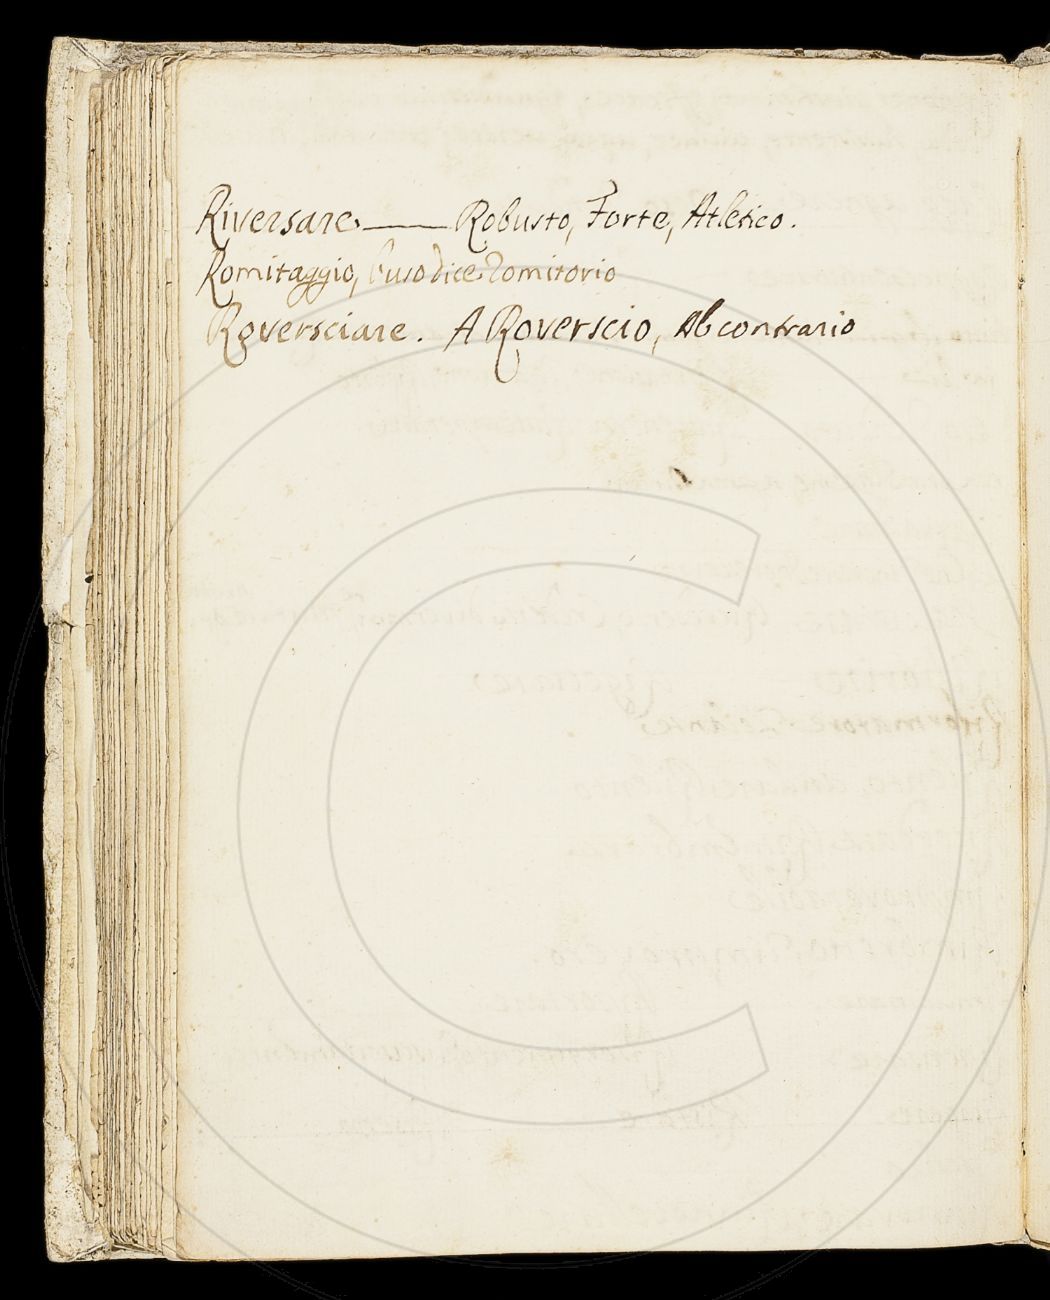 Riversare ——— Robusto, Forte, Atletico.
Romitaggio, l'uso dice Romitorio
Roversciare. A Roverscio, Ab contrario